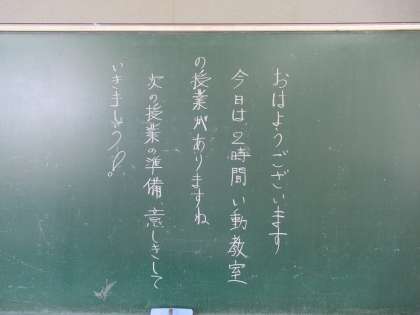 おはようございます
今日は2時間い動教室
の授業がありますね
次の授業の準備、意しきして
いきましょう!